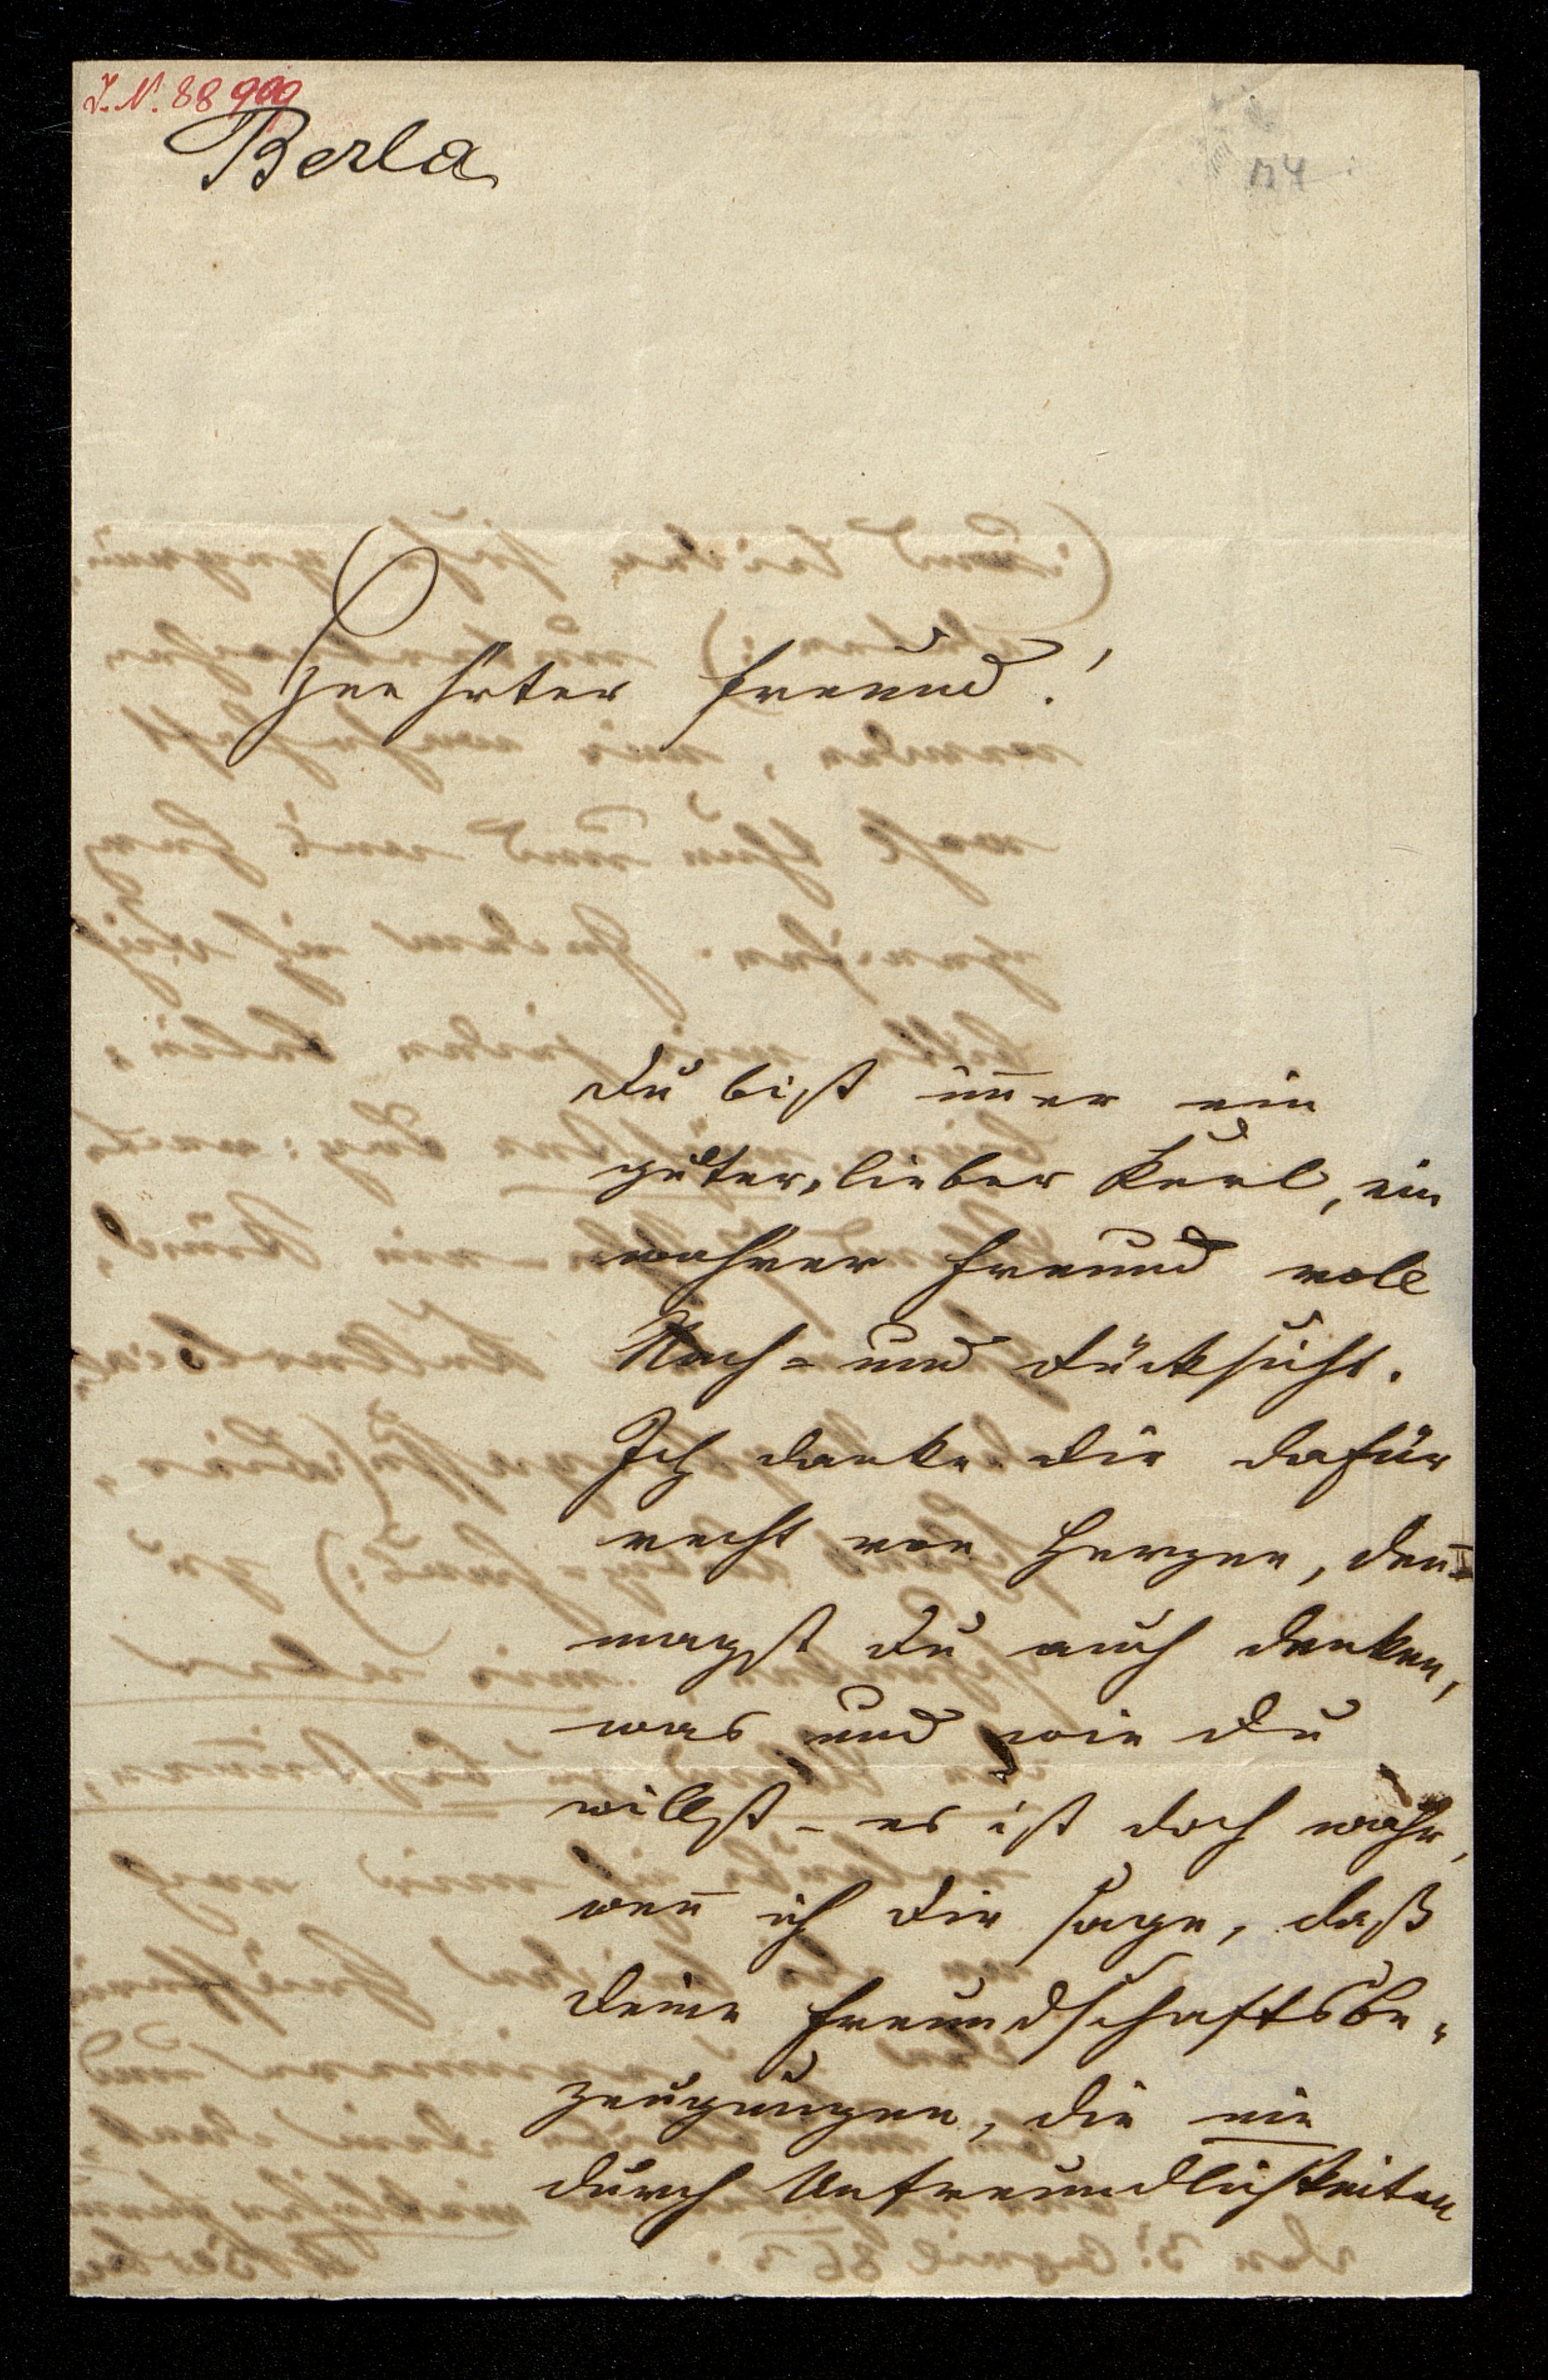 I. N. 88 909
Berla
Geehrter Freund!
Du bist im̄er ein
guter, lieber Kerl, ein
wahrer Freund voll
Nach- und Rücksicht.
Ich danke Dir dafür
recht von Herzen, den̄
magst Du auch denken,
was und wie Du
willst – es ist doch wahr,
wen̄ ich Dir sage, daß
Deine Freundschaftsbe-
zeugungen, die nie
durch Unfreundlichkeiten